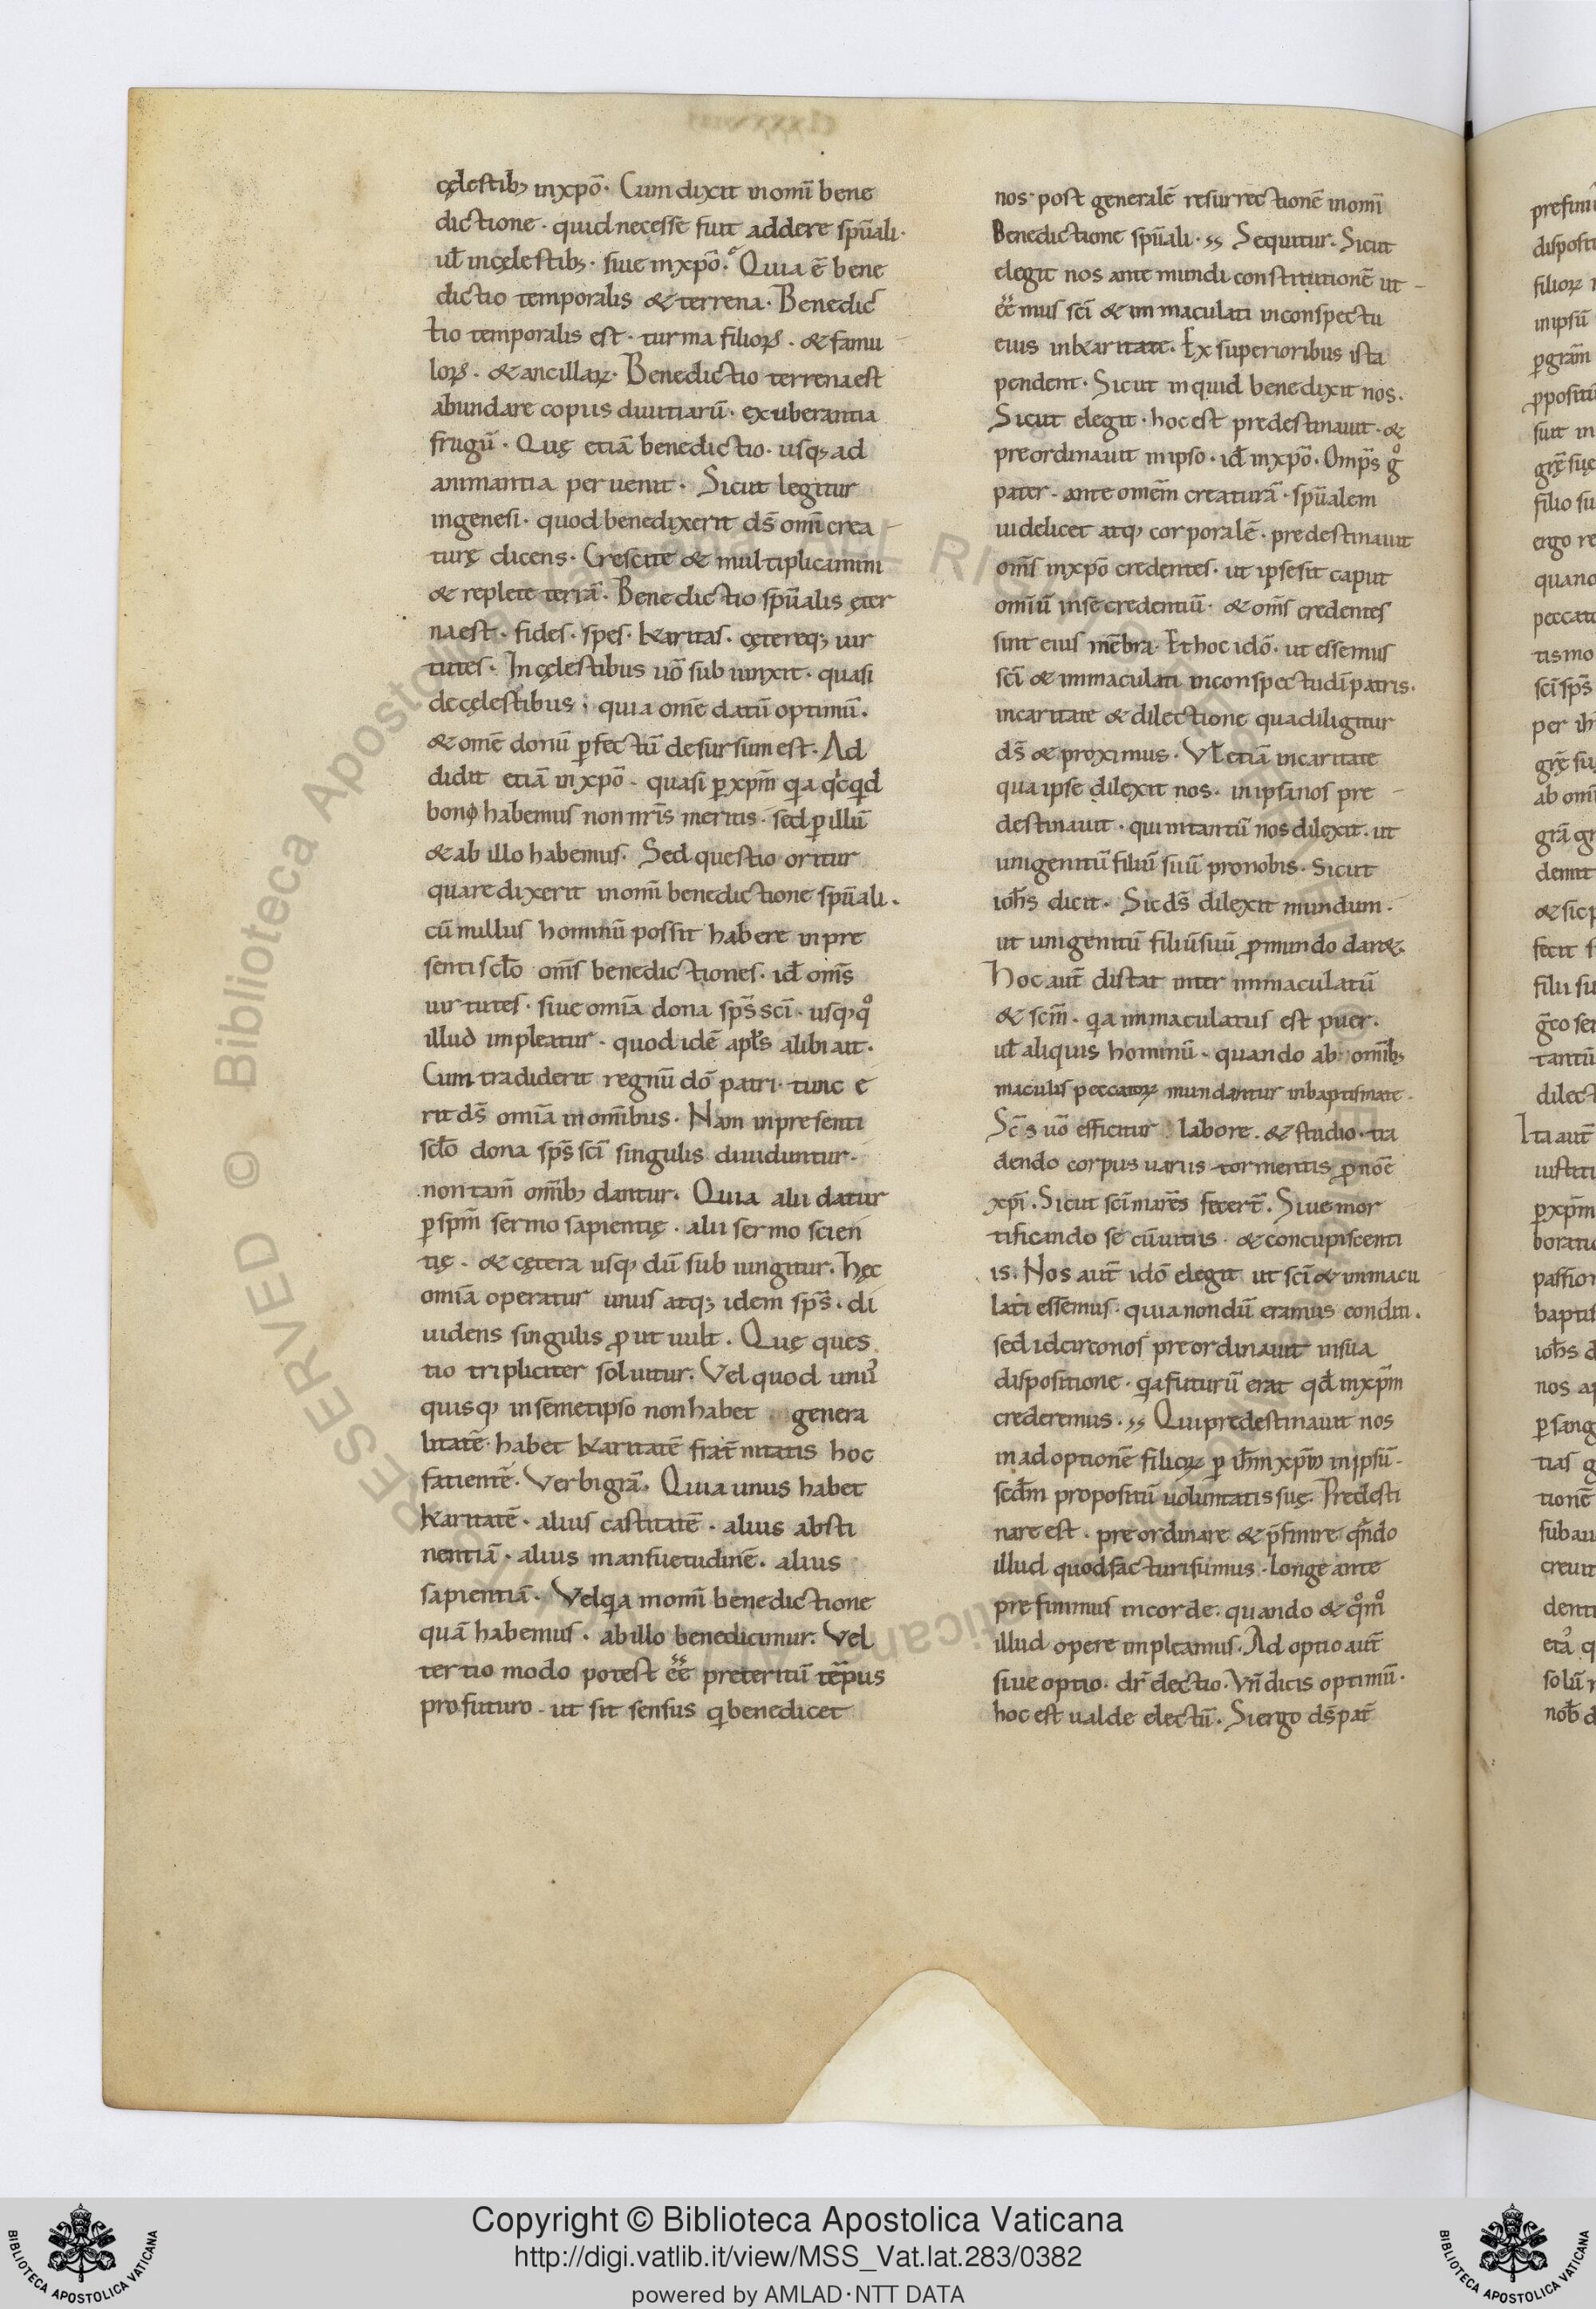 cęlestib; in xpō. Cum dixit in omī bene
dictione. quid necesse fuit addere spūali.
ul̄ in cęlestib;. siue in xpō. Quia ē bene
dictio temporalis & terrena. Benedic
tio temporalis est. turma filioꝝ. & famu
loꝝ. & ancillaꝝ. Benedictio terrena est
abundare copiis diuitiarū. exuberantia
frugū. Quę etiā benedictio. usq; ad
animantia peruenit. Sicut legitur
in genesi. quod benedixerit ds̄ omī crea
turę dicens. Crescite & multiplicamini
& replete terrā. Benedictio spūalis ęter
na est. fides. spes. karitas. cętereq; uir
tutes. In cęlestibus uō subiunxit. quasi
de cęlestibus; quia omē datū optimū.
& omē donū ꝑfectū desursum est. Ad
didit etiā in xpō. quasi ꝑ xpm̄ qa qcqd
bono habemus non nrīs meritis. sed ꝑ illū
& ab illo habemus. Sed questio oritur
quare dixerit in omī benedictione spūali.
cū nullus hominū possit habere in pre
senti sclō omīs benedictiones. id omīs
uirtutes. siue omīa dona sps̄ scī. usq; qͦ
illud impleatur. quod idē apl̄s alibi ait.
Cum tradiderit regnū dō patri. tunc e
rit ds̄ omīa in omībus. Nam in presenti
sclō dona sps̄ scī singulis diuiduntur.
non tam̄ omīb; dantur. Quia alii datur
ꝑ spm̄ sermo sapientię. alii sermo scien
tię. & cętera usq; dū subiungitur. hęc
omīa operatur unus atq; idem sps̄. di
uidens singulis ꝓut uult. Quę ques
tio tripliciter soluitur. Vel quod unus
quisq; in semetipso non habet genera
litatē. habet karitatē frat̄nitatis hoc
fatientē. Verbi grā. Quia unus habet
karitatē. alius castitatē. alius absti
nentiā. alius mansuetudinē. alius
sapientiā. Vel qa in omī benedictione
quā habemus. ab illo benedicimur. Vel
tertio modo potest eē preteritū tēpus
pro futuro. ut sit sensus q benedicet
nos. post generalē resurrectionē in omī
Benedictione spūali. Sequitur. Sicut
elegit nos ante mundi constitutionē ut
eēmus scī & immaculati in conspectu
eius in karitate. Ex superioribus ista
pendent. Sicut inquid benedixit nos.
Sicut elegit. hoc est predestinauit. &
preordinauit in ipso. id in xpō. Omps̄ gͦ
pater. ante omēm creaturā. spūalem
uidelicet atq; corporalē. predestinauit
omīs in xpō credentes. ut ipse sit caput
omīū in se credentiū. & omīs credentes
sint eius mēbra. Et hoc idō. ut essemus
scī & immaculati in conspectu dī patris.
in caritate & dilectione qua diligitur
ds̄ & proximus. Vl̄ etiā in caritate
qua ipse dilexit nos. in ipsa nos pre
destinauit. qui in tantū nos dilexit. ut
unigenitū filiū suū pro nobis. sicut
ioh̄s dicit. Sic ds̄ dilexit mundum.
ut unigenitū filiū suū ꝓ mundo dar&.
Hoc aut̄ distat inter immaculatū
& scm̄. qa immaculatus est puer.
ul̄ aliquis hominū. quando ab omīb;
maculis peccatoꝝ mundantur in baptismate.
Scs̄ uō efficitur labore. & studio. tra
dendo corpus uariis tormentis ꝓ noē
xpī. Sicut scī mrēs fecert̄. Siue mor
tificando se cū uitiis. & concupiscenti
is. Nos aut̄ idō elegit ut scī & immacu
lati essemus. quia nondū eramus conditi.
sed idcirco nos preordinauit in sua
dispositione. qa futurū erat qd̄ in xpm̄
crederemus. Qui predestinauit nos
in adoptionē filioꝝ ꝑ ih̄m xpm̄ in ipsū.
scd̄m propositū uoluntatis suę. Predesti
nare est. preordinare & p̄finire. qn̄do
illud quod facturi sumus. longe ante
prefinimus in corde. quando & qͦmͦ
illud opere impleamus. Adoptio aut̄
siue optio. dr̄ electio. Vn̄ dicis optimū.
hoc est ualde electū. Si ergo ds̄ pat̄
Copyright © Biblioteca Apostolica Vaticana
http://digi.vatlib.it/view/MSS_Vat.lat.283/0382
powered by AMLAD·NTT DATA
BIBLIOTECA APOSTOLICA VATICANA
BIBLIOTECA APOSTOLICA VATICANA